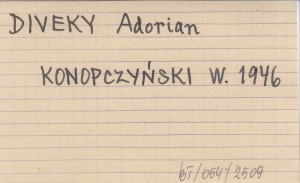 DIVEKY Adorian
KONOPCZYŃSKI W. 1946
BT/054/2509